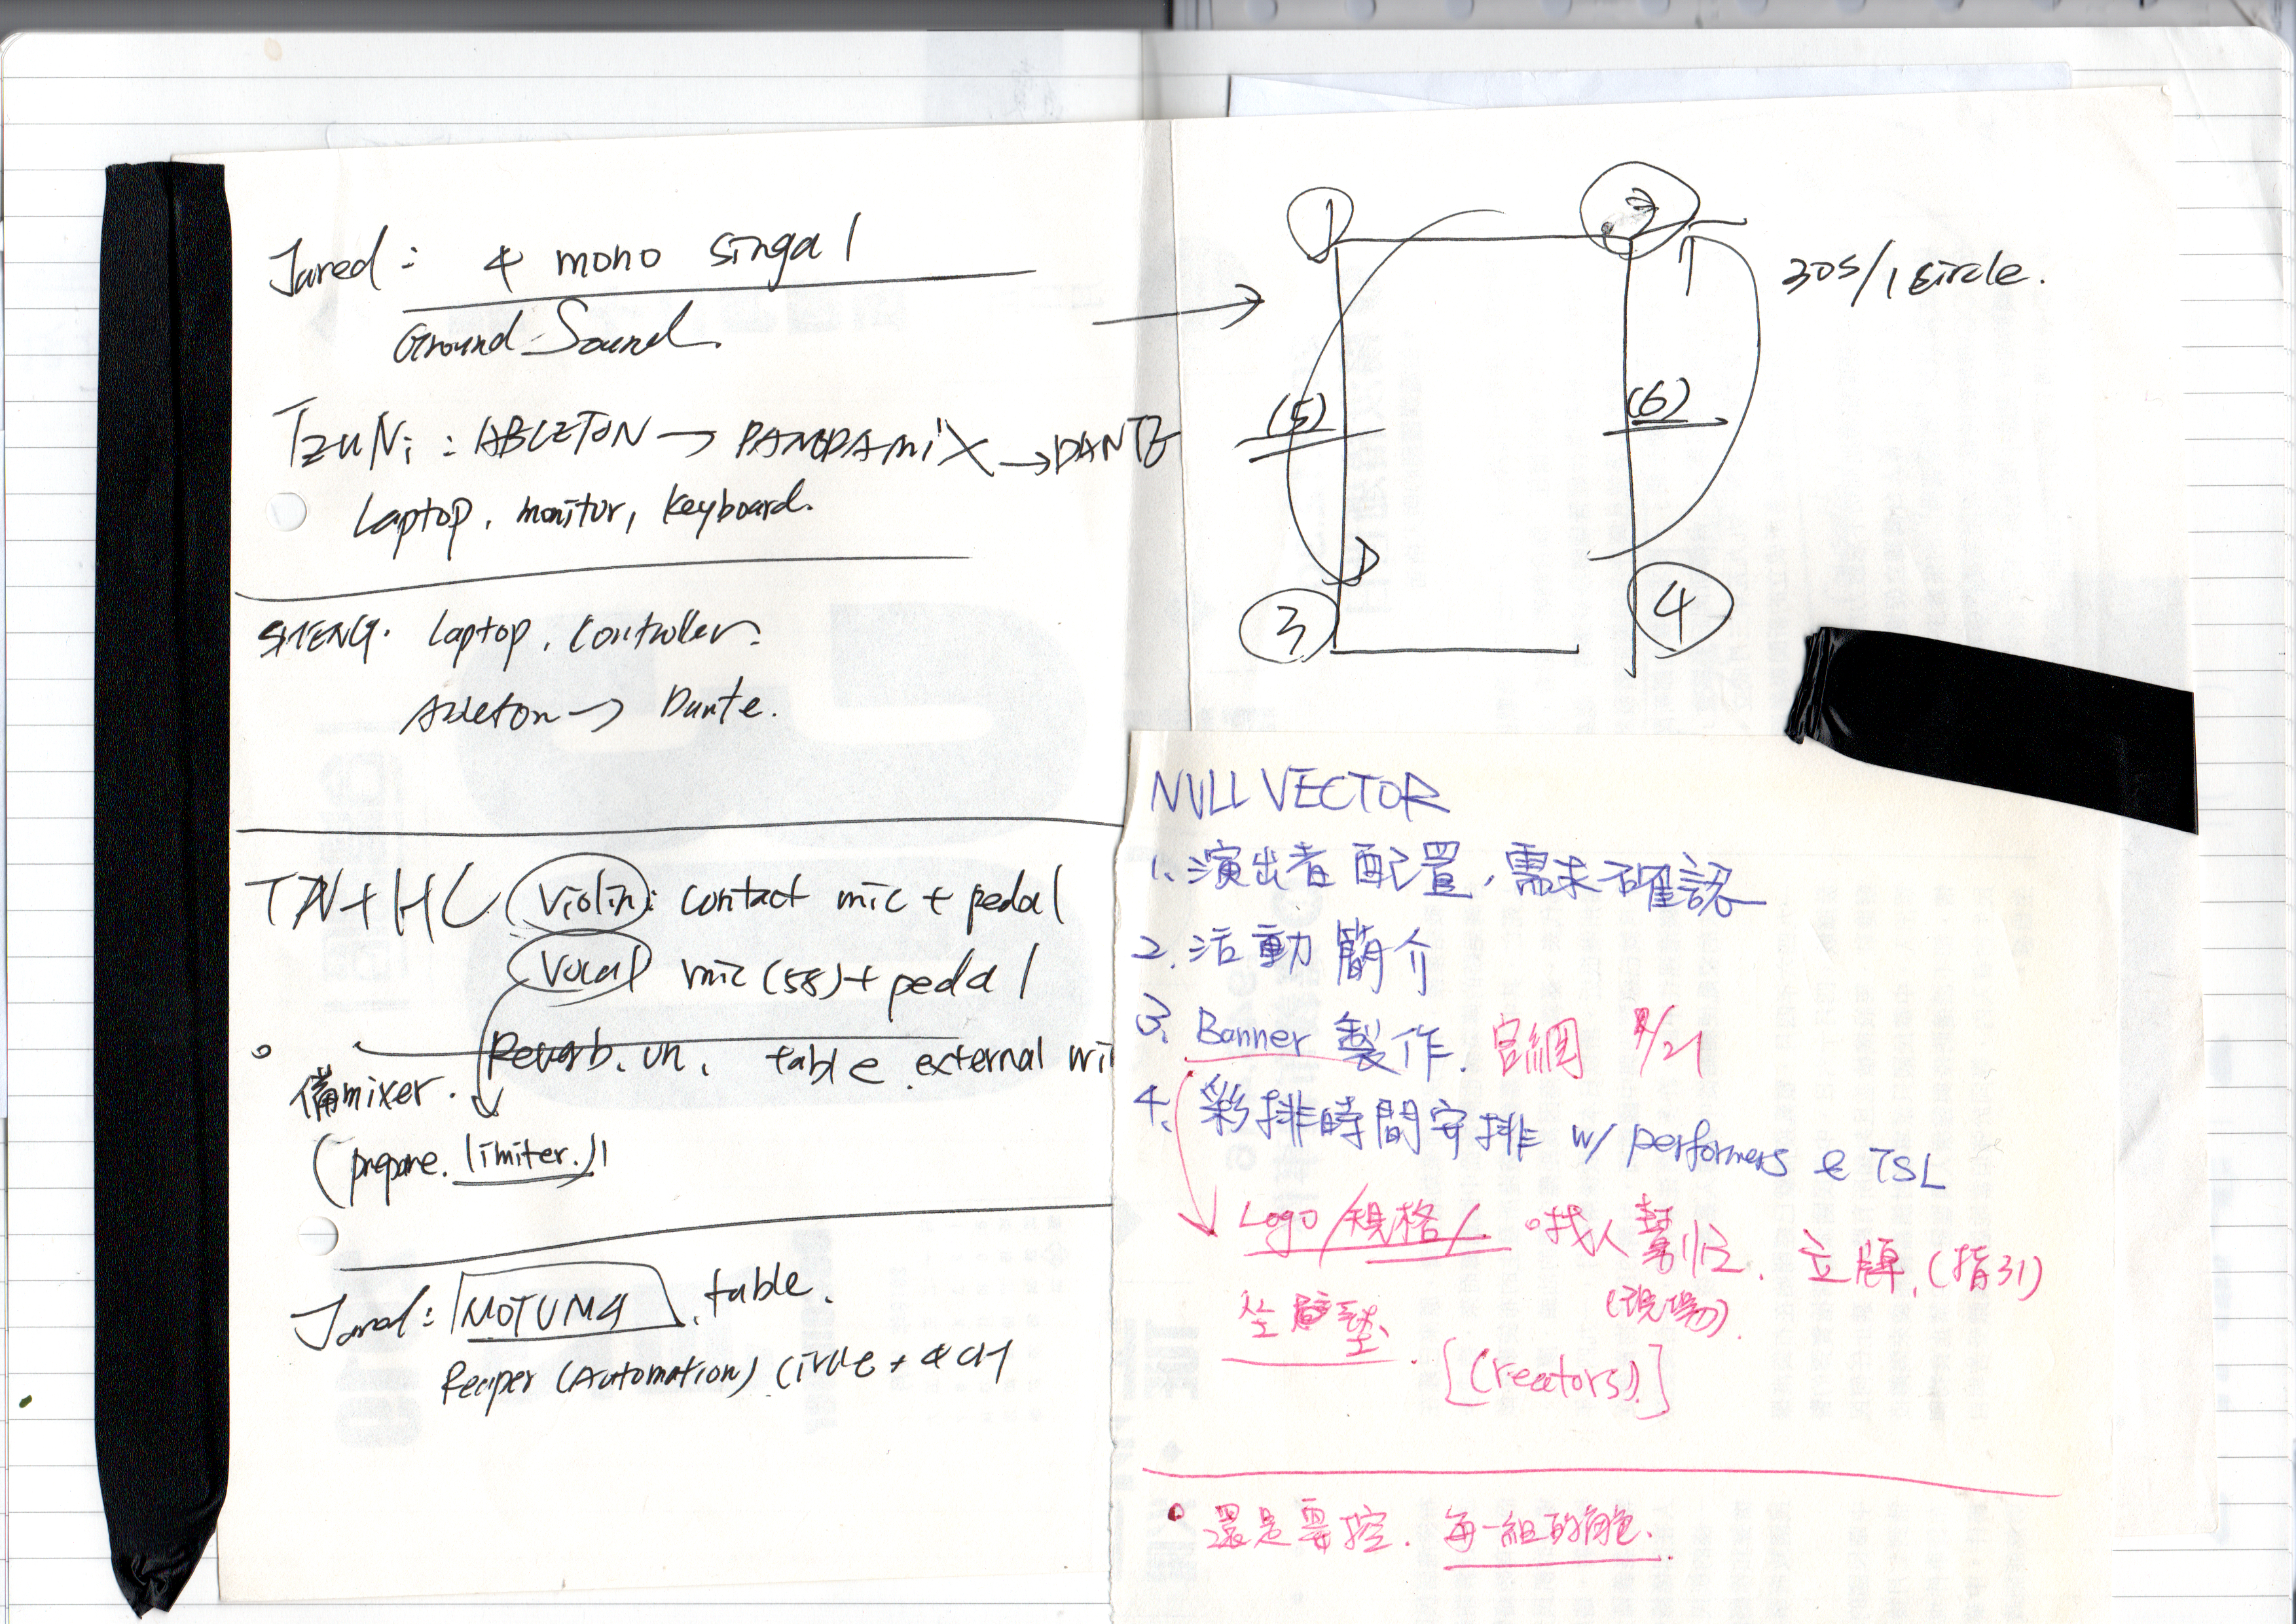 Jared: 4 mono singal
Ground Sound.
TzuNi: ABLETON → PANORAMIX → DANTE
Laptop, monitor, keyboard.
SHENG. Laptop, controller.
Ableton → Dante.
TN+HC Violin: contact mic + pedal
Vocal mic (58) + pedal
Reverb. on. table. external
備mixer.
(prepare. limiter.)
Jared: MOTU M4, table.
Reaper (Automation) Circle + 4 CH
1 2
30s/1 circle.
(5) (6)
3 4
NULL VECTOR
1. 演出者配置,需求確認
2. 活動簡介
3. Banner 製作. 官網 /21
4. 彩排時間安排 w/ performers & TSL
Logo/規格/. 找人幫忙. 立牌.(指引)
(現場).
坐墊.
[(creators).]
還是要控. 每一組的